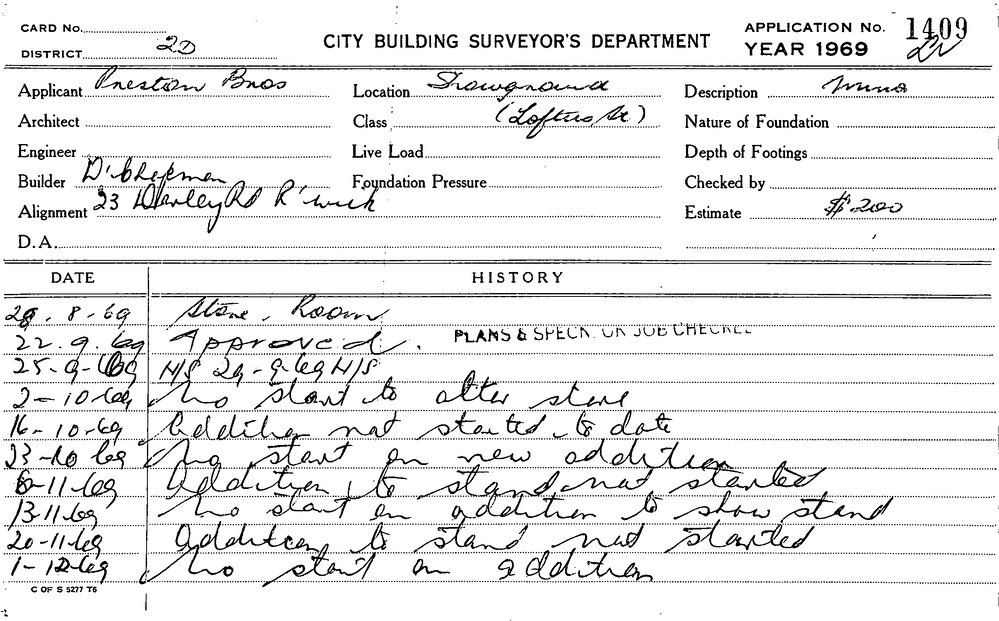 CARD No.
DISTRICT 2D
CITY BUILDING SURVEYOR'S DEPARTMENT
APPLICATION No. 1409
YEAR 1969
Applicant Preston Bros
Location Showground
Description Minor
Architect
Class (Loftus St.)
Nature of Foundation
Engineer
Live Load
Depth of Footings
Builder D. Chapman
Foundation Pressure
Checked by
Alignment 23 Darley Rd R'wick
Estimate $200
D.A.
DATE HISTORY
28.8.69 Store Room
22.9.69 Approved. PLANS & SPECN. ON JOB CHECKED
25-9-69 N/S 29-9-69 N/S
2-10-69 No start to alter store
16-10-69 Addition not started to date
23-10-69 No start on new addition
6-11-69 Addition to stand not started
13-11-69 No start on addition to show stand
20-11-69 Addition to stand not started
1-12-69 No start on addition
C OF S 5277 T6